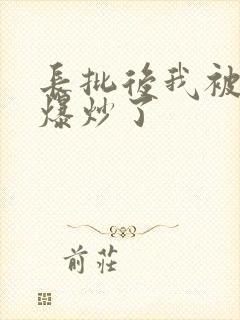 長批後我被
爆炒了
前莊